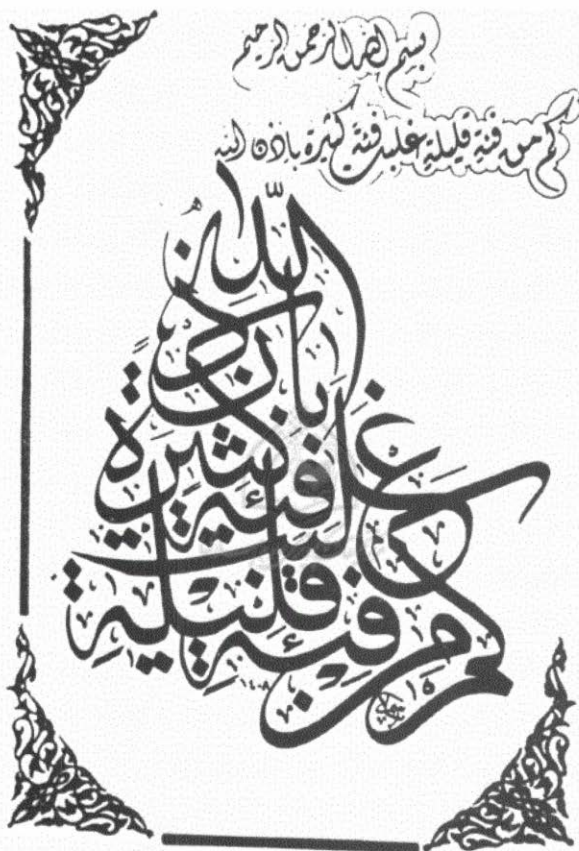 بسم الله الرحمن الرحيم
كم من فئة قليلة غلبت فئة كثيرة باذن الله
كَم مِن فِئَةٍ قَلِيلَةٍ غَلَبَت فِئَةً كَثِيرَةً بِإِذنِ اللَّهِ